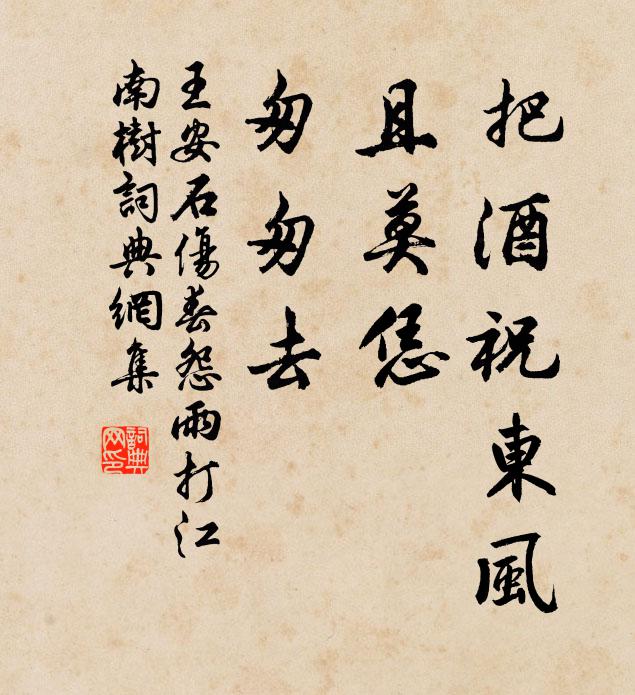 把酒祝東風
且莫恁
匆匆去
王安石傷春怨雨打江
南樹詞典網集
詞典
网印